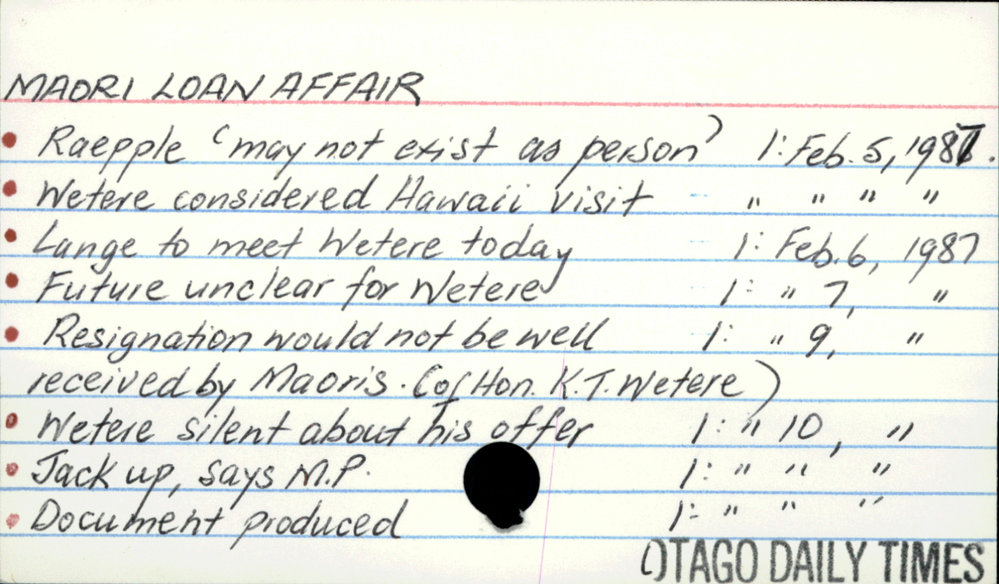 MAORI LOAN AFFAIR
• Raepple 'may not exist as person' 1: Feb. 5, 1987.
• Wetere considered Hawaii visit " " " "
• Lange to meet Wetere today 1: Feb. 6, 1987
• Future unclear for Wetere 1: " 7, "
• Resignation would not be well 1: " 9, "
received by Maoris. (of Hon. K.T. Wetere)
• Wetere silent about his offer 1: " 10, "
• Jack up, says M.P. 1: " " "
• Document produced 1: " " "
OTAGO DAILY TIMES